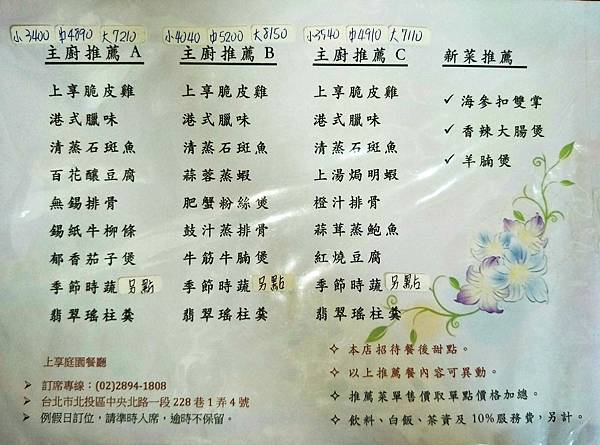 小3400 中4890 大7210
主廚推薦 A
上享脆皮雞
港式臘味
清蒸石斑魚
百花釀豆腐
無錫排骨
錫紙牛柳條
郁香茄子煲
季節時蔬 另點
翡翠瑤柱羹
小4040 中5200 大8150
主廚推薦 B
上享脆皮雞
港式臘味
清蒸石斑魚
蒜蓉蒸蝦
肥蟹粉絲煲
鼓汁蒸排骨
牛筋牛腩煲
季節時蔬 另點
翡翠瑤柱羹
小3540 中4910 大7110
主廚推薦 C
上享脆皮雞
港式臘味
清蒸石斑魚
上湯焗明蝦
橙汁排骨
蒜茸蒸鮑魚
紅燒豆腐
季節時蔬 另點
翡翠瑤柱羹
新菜推薦
✓ 海參扣雙掌
✓ 香辣大腸煲
✓ 羊腩煲
上享庭園餐廳
➢ 訂席專線：(02)2894-1808
➢ 台北市北投區中央北路一段 228 巷 1 弄 4 號
➢ 例假日訂位，請準時入席，逾時不保留。
✧ 本店招待餐後甜點。
✧ 以上推薦餐內容可異動。
✧ 推薦菜單售價取單點價格加總。
✧ 飲料、白飯、茶資及 10%服務費，另計。